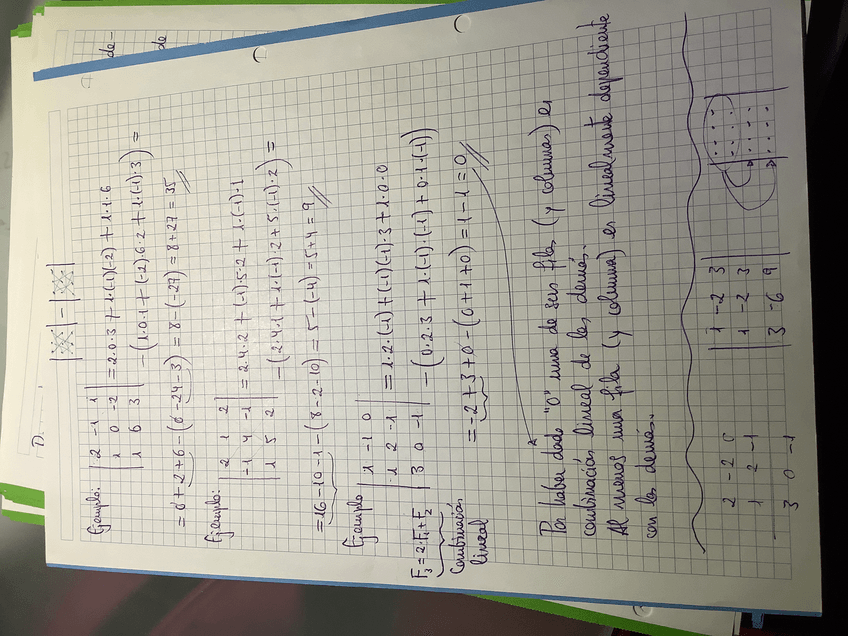 Ejemplo:
| 2 -1 1 |
| 1 0 -2 | = 2·0·3 + 1·(-1)(-2) + 1·1·6
| 1 6 3 | - (1·0·1 + (-2)·6·2 + 1·(-1)·3) =
= 0 + 2 + 6 - (0 - 24 - 3) = 8 - (-27) = 8 + 27 = 35
Ejemplo:
| 2 1 2 |
| -1 4 -1 | = 2·4·2 + (-1)·5·2 + 1·(-1)·1
| 1 5 2 | - (2·4·1 + 1·(-1)·2 + 5·(-1)·2) =
= 16 - 10 - 1 - (8 - 2 - 10) = 5 - (-4) = 5 + 4 = 9
Ejemplo
| 1 -1 0 |
| 1 2 -1 | = 1·2·(-1) + (-1)(-1)·3 + 1·0·0
| 3 0 -1 | - (0·2·3 + 1·(-1)·(-1) + 0·1·(-1))
F3 = 2·F1 + F2
Combinación
lineal
= -2 + 3 + 0 - (0 + 1 + 0) = 1 - 1 = 0
Por haber dado "0" una de sus filas (y columnas) es
combinación lineal de las demás.
Al menos una fila (y columna) es linealmente dependiente
con las demás.
2 -2 0
1 2 -1
3 0 -1
| 1 -2 3 |
| 1 -2 3 |
| 3 -6 9 |
de-
de